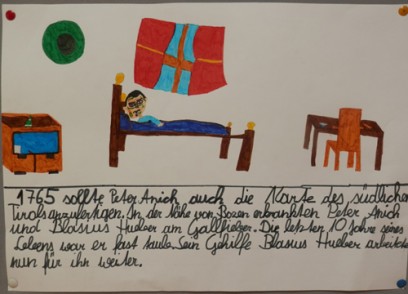 1765 sollte Peter Anich auch die Karte des südlichen
Tirols anzufertigen. In der Nähe von Bozen erkrankten Peter Anich
und Blasius Hueber am Gallfieber. Die letzten 10 Jahre seines
Lebens war er fast taub. Sein Gehilfe Blasius Hueber arbeitete
nun für ihn weiter.